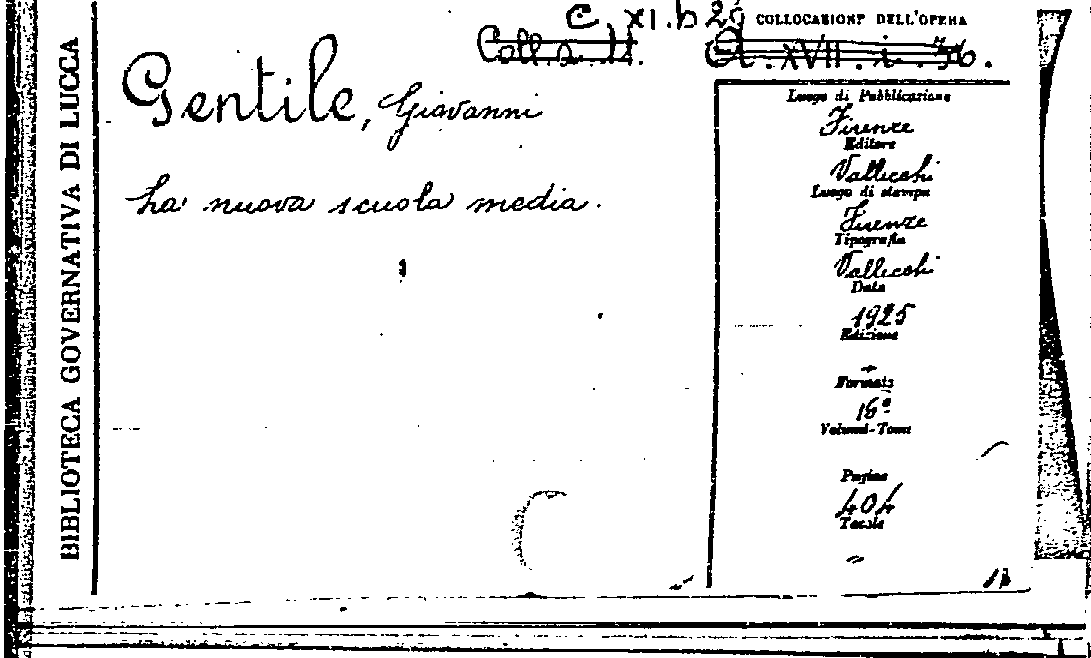 BIBLIOTECA GOVERNATIVA DI LUCCA
C. XI. b 29
COLLOCAZIONE DELL'OPERA
Gentile, Giovanni
La nuova scuola media.
Luogo di Pubblicazione
Firenze
Editore
Vallecchi
Luogo di stampa
Firenze
Tipografia
Vallecchi
Data
1925
Edizione
Formato
16°
Volumi-Tomi
Pagine
404
Tavole